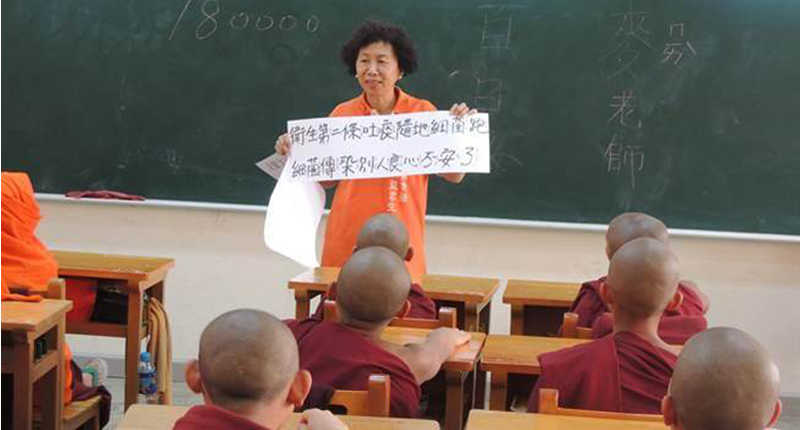 180000
麥老師
ㄇㄞ
衛生第二條吐痰隨地細菌跑
細菌傳染別人良心不安了